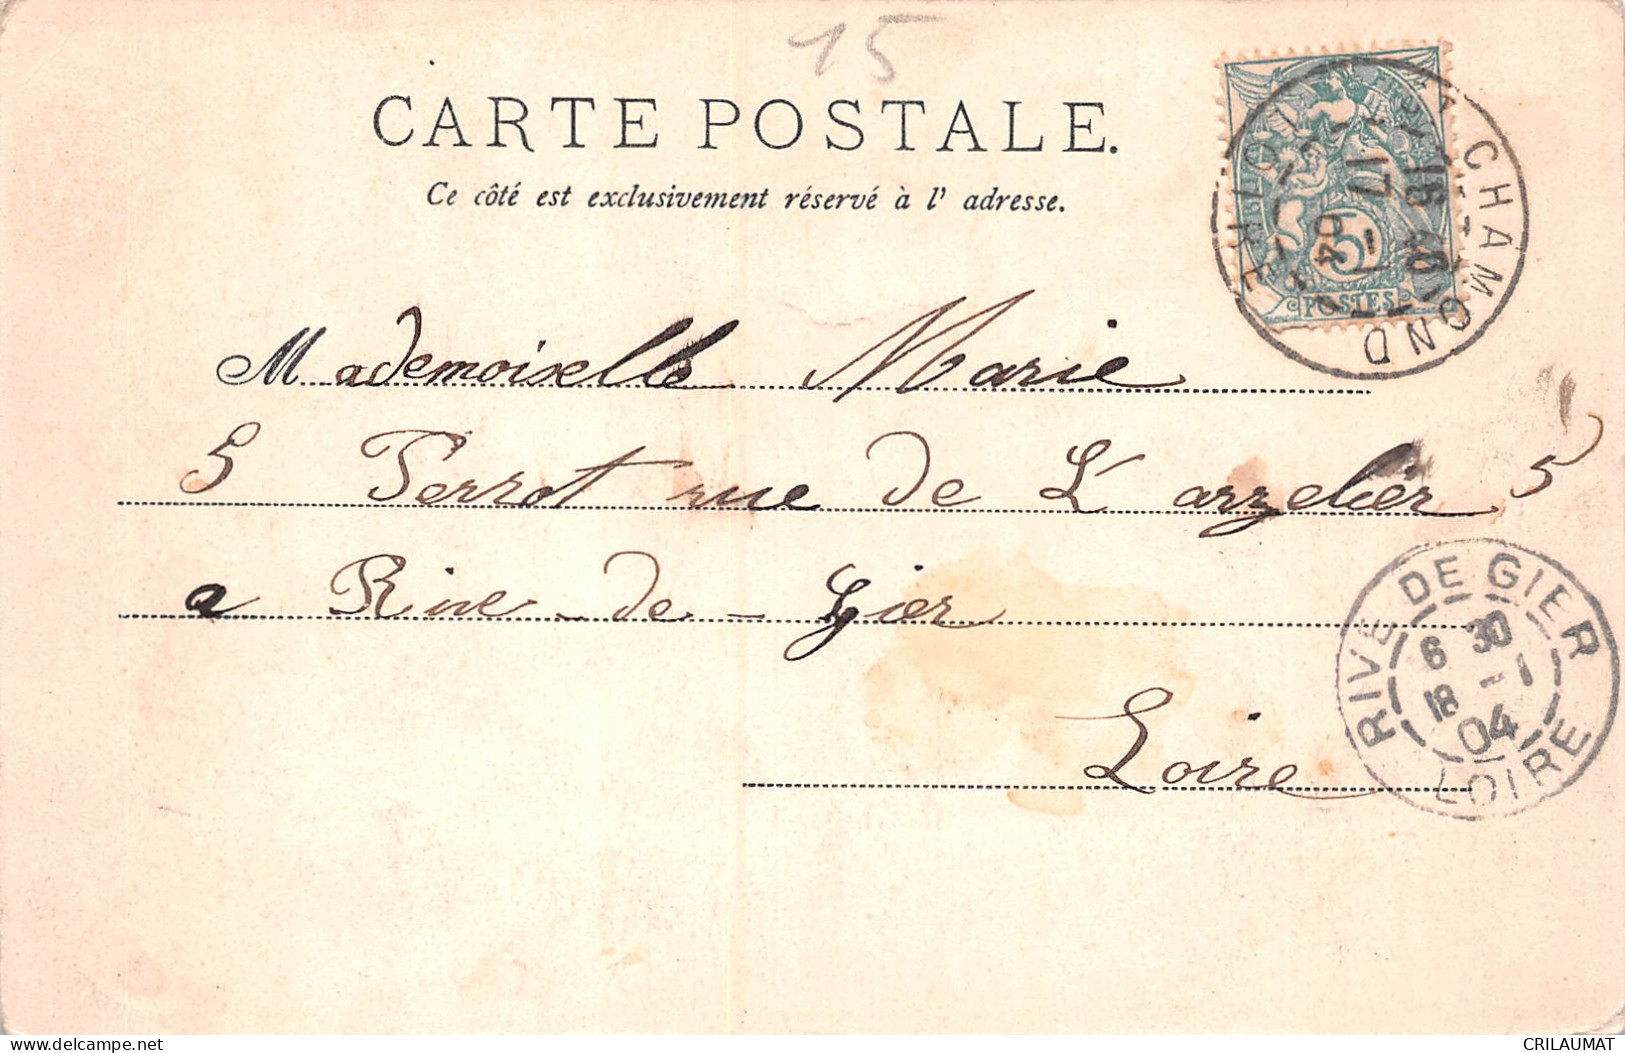 15
CARTE POSTALE.
Ce côté est exclusivement réservé à l' adresse.
Mademoiselle Marie
5 Perrot rue de L'arzelier 5
a Rive-de-Gier
Loire
5
POSTES
CHAMOND
LOIRE
17 -1
04
RIVE DE GIER
6 30
18 -1
04
LOIRE
delcampe.net
CRILAUMAT